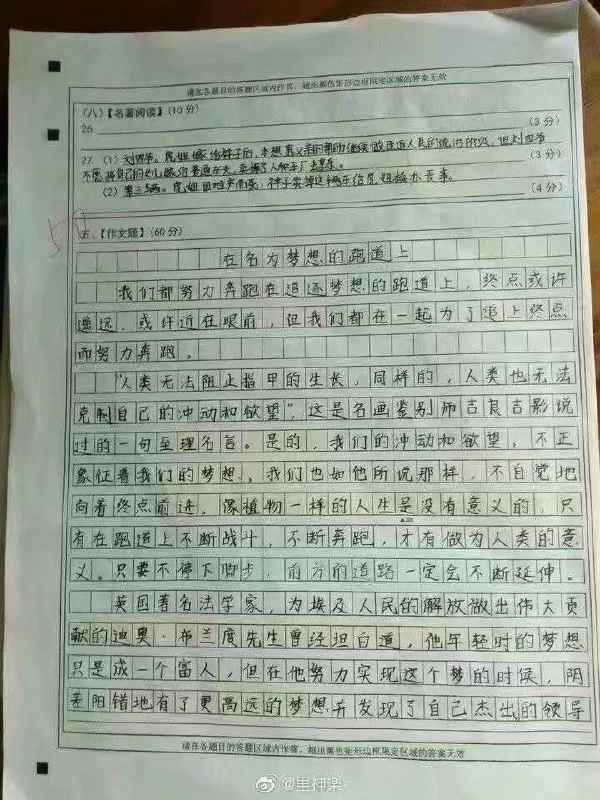 请在各题目的答题区域内作答，超出黑色矩形边框限定区域的答案无效
(八)【名著阅读】(10分)
26. (3分)
27 (1) 刘四爷。虎妞嫁给祥子后，本想靠父亲的帮助继续做 人民的统治阶级，但刘四爷 (3分)
不愿将自己的女儿嫁给普通车夫，卖掉了人和车厂 。
(2) 第三辆。虎妞因难产而死，祥子卖掉这辆车给虎妞操办丧事。 (4分)
五、【作文题】(60分)
在名为梦想的跑道上
我们都努力奔跑在追逐梦想的跑道上，终点或许
遥远，或许近在眼前，但我们都在一起为了追上终点
而努力奔跑。
"人类无法阻止指甲的生长，同样的，人类也无法
克制自己的冲动和欲望"，这是名画鉴别师吉良吉影说
过的一句至理名言。是的，我们的冲动和欲望，不正
象征着我们的梦想，我们也如他所说那样，不自觉地
向着终点前进，像植物一样的人生是没有意义的，只
▲200
有在跑道上不断战斗，不断奔跑，才有做为人类的意
义。只要不停下脚步，前方的道路一定会不断延伸。
英国著名法学家，为埃及人民的解放做出伟大贡
献的迪奥·布兰度先生曾经坦白道，他年轻时的梦想
只是成一个富人，但在他努力实现这个梦的时候，阴
差阳错地有了更高远的梦想并发现了自己杰出的领导
请在各题目的答题区域内作答，超出黑色矩形边框限定区域的答案无效
@里神楽